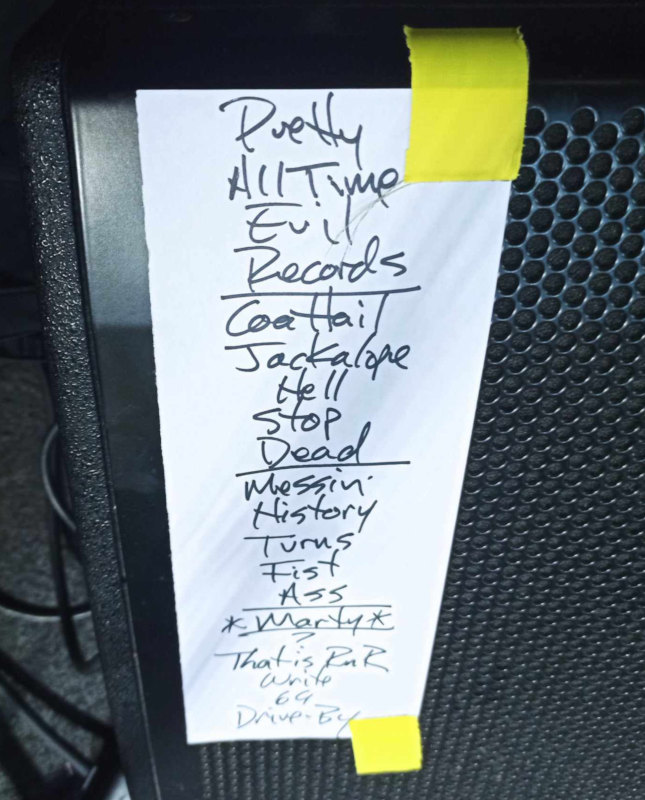 Pretty
All Time
Evil
Records
Coattail
Jackalope
Hell
Stop
Dead
Messin'
History
Turns
Fist
Ass
*Marty*
?
That is RnR
Write
69
Drive-By